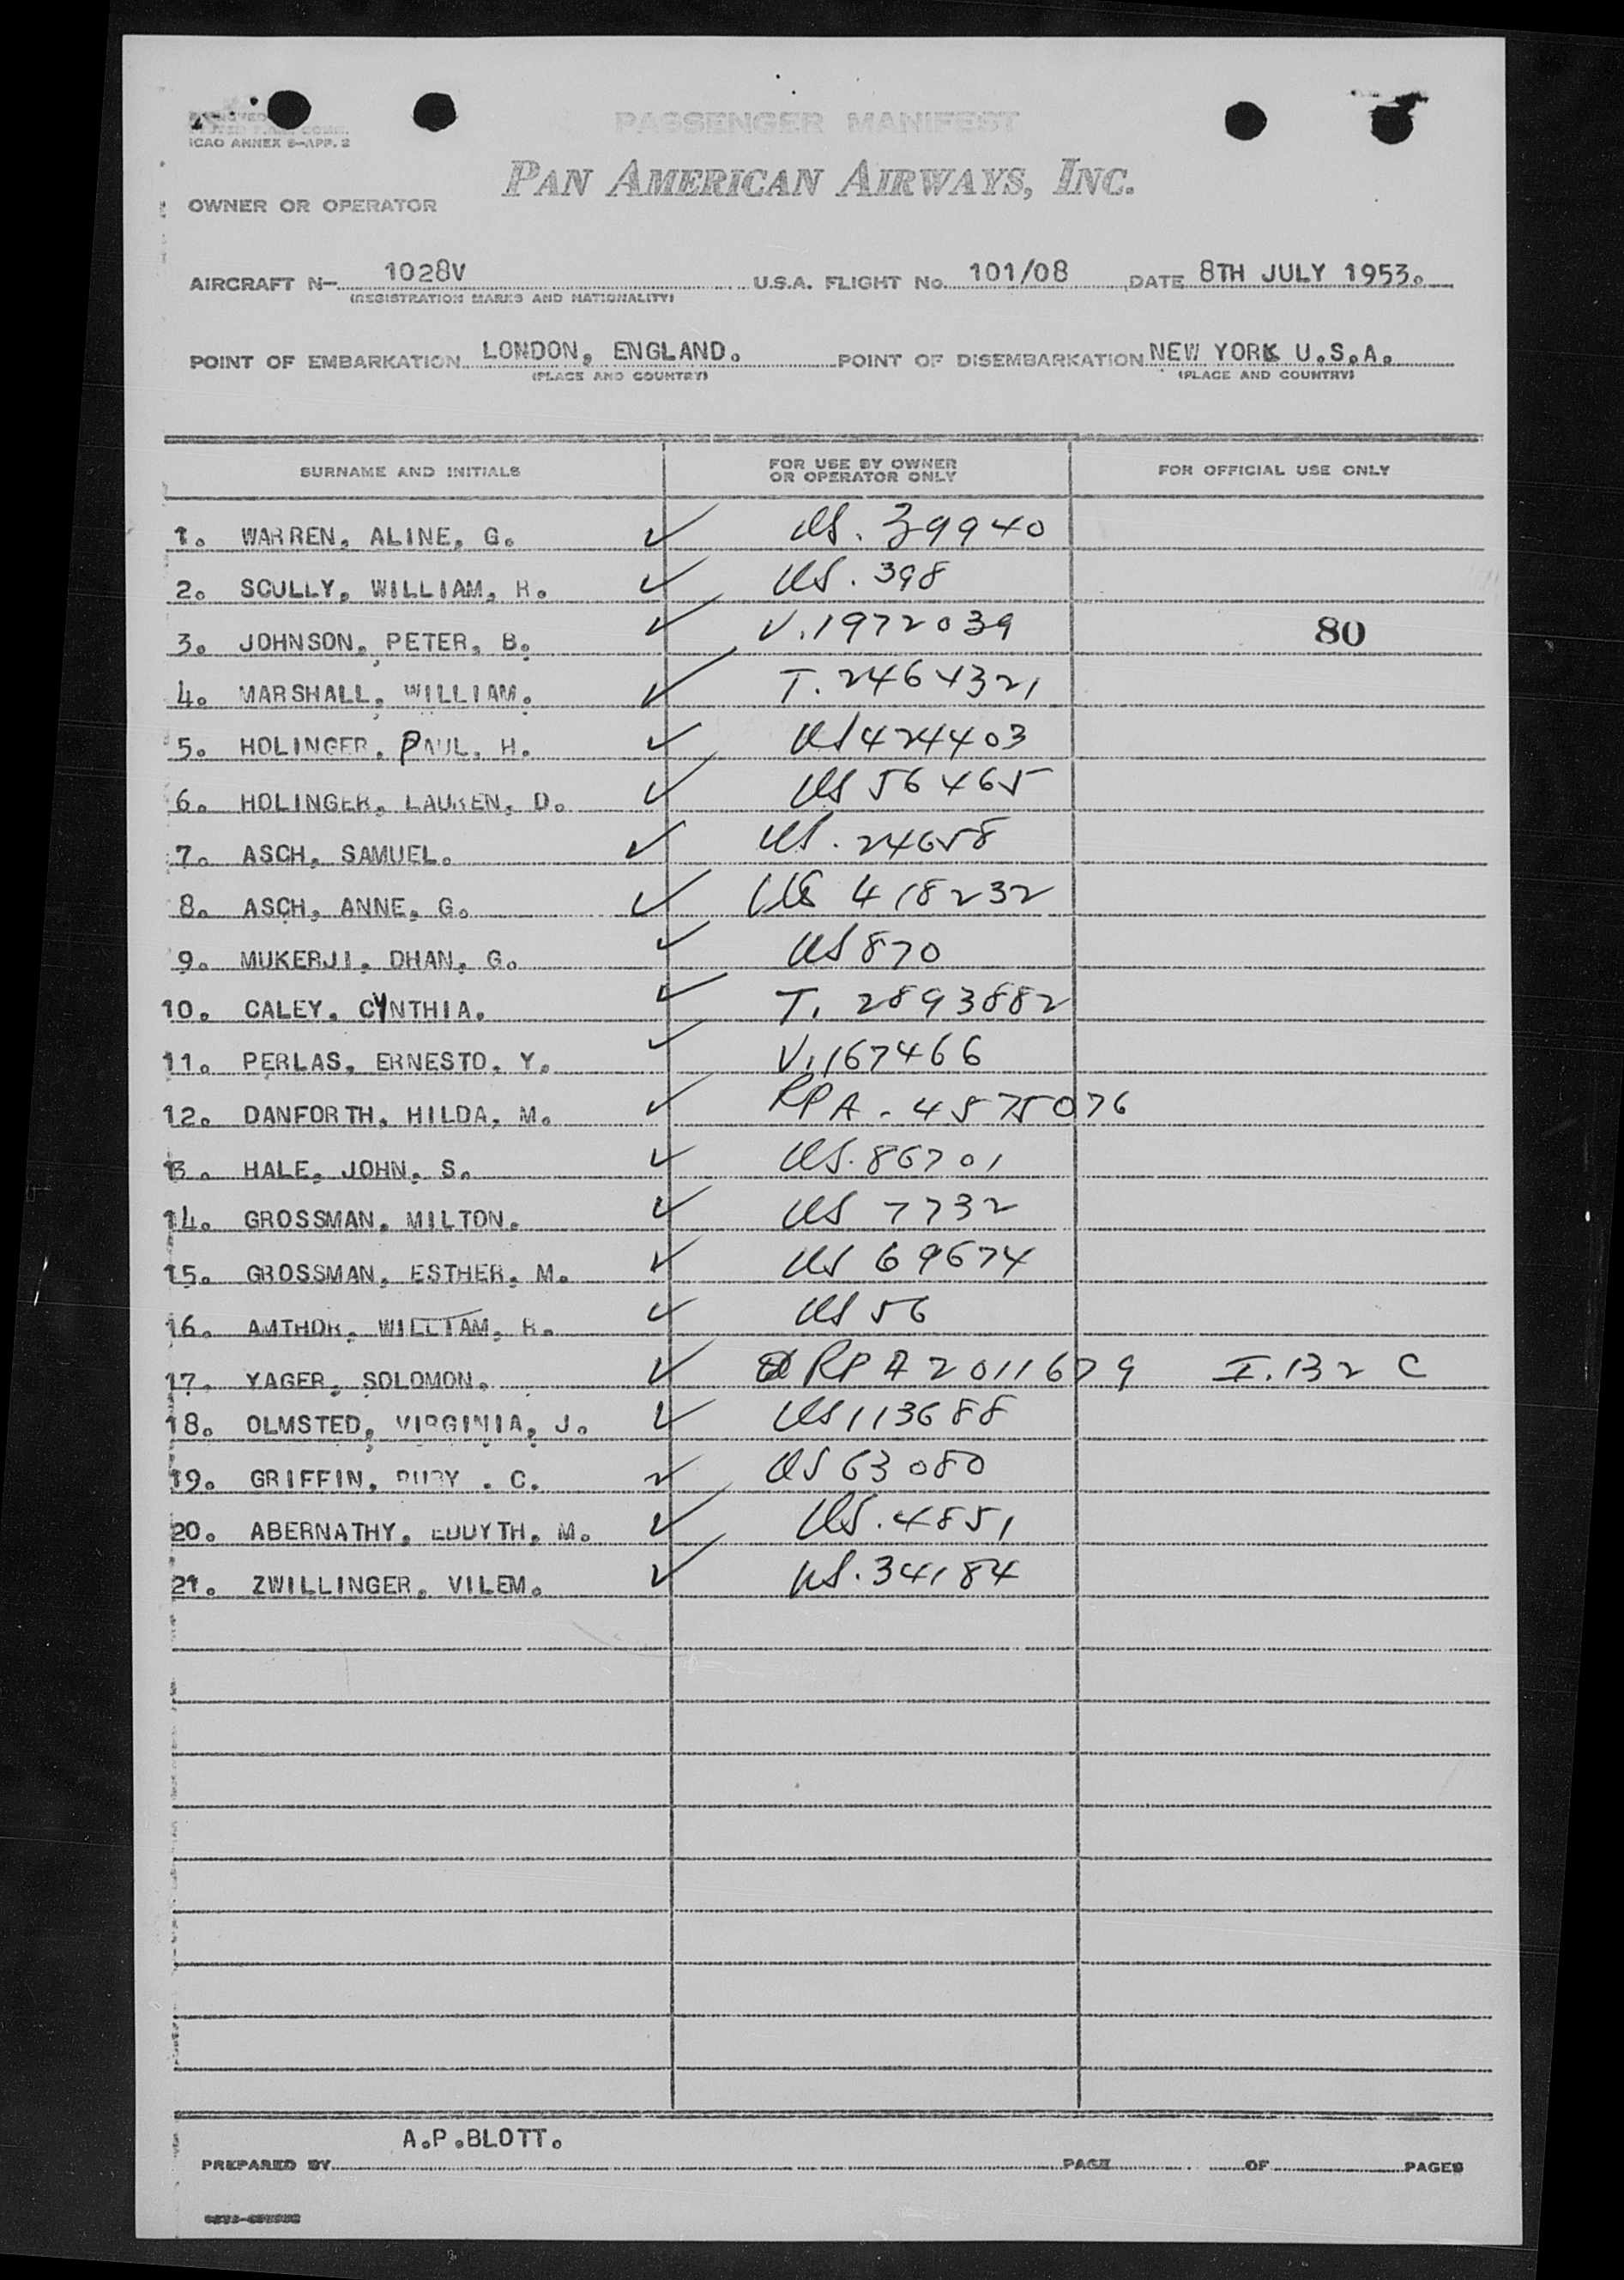 PASSENGER MANIFEST
ICAO ANNEX 9—APP. 2
PAN AMERICAN AIRWAYS, INC.
OWNER OR OPERATOR
AIRCRAFT N- 1028V U.S.A. FLIGHT No. 101/08 DATE 8TH JULY 1953.
(REGISTRATION MARKS AND NATIONALITY)
POINT OF EMBARKATION LONDON, ENGLAND. POINT OF DISEMBARKATION NEW YORK U.S.A.
(PLACE AND COUNTRY) (PLACE AND COUNTRY)
SURNAME AND INITIALS FOR USE BY OWNER OR OPERATOR ONLY FOR OFFICIAL USE ONLY
1. WARREN, ALINE, G. ✓ US. 39940
2. SCULLY, WILLIAM, R. ✓ US. 398
3. JOHNSON, PETER, B. ✓ V.1972039 80
4. MARSHALL, WILLIAM. ✓ T. 2464321
5. HOLINGER, PAUL, H. ✓ US 424403
6. HOLINGER, LAUREN, D. ✓ US 56465
7. ASCH, SAMUEL. ✓ US. 24658
8. ASCH, ANNE, G. ✓ US 418232
9. MUKERJI, DHAN, G. ✓ US 870
10. CALEY, CYNTHIA. ✓ T. 2893882
11. PERLAS, ERNESTO, Y. ✓ V.167466
12. DANFORTH, HILDA, M. ✓ RPA - 4575076
13. HALE, JOHN, S. ✓ US. 86701
14. GROSSMAN, MILTON. ✓ US 7732
15. GROSSMAN, ESTHER, M. ✓ US 69674
16. AMTHOR, WILLIAM, R. ✓ US 56
17. YAGER, SOLOMON. ✓ RPA 2011679 I. 132 C
18. OLMSTED, VIRGINIA, J. ✓ US 113688
19. GRIFFIN, RUBY . C. ✓ US 63080
20. ABERNATHY, EDDYTH, M. ✓ US. 4851
21. ZWILLINGER, VILEM. ✓ US. 34184
A.P.BLOTT.
PREPARED BY PAGE OF PAGES